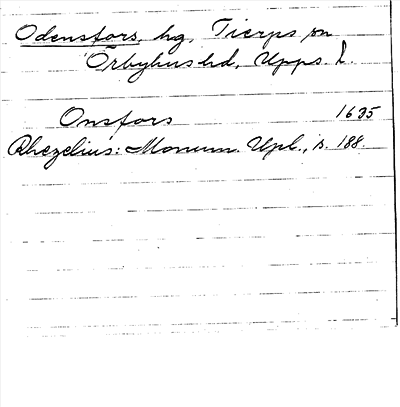 Odensfors, hg, Tierps sn
Örbyhus hd, Upps. l.
Onsfors 1635
Rhezelius: Monum. Upl., s. 188.